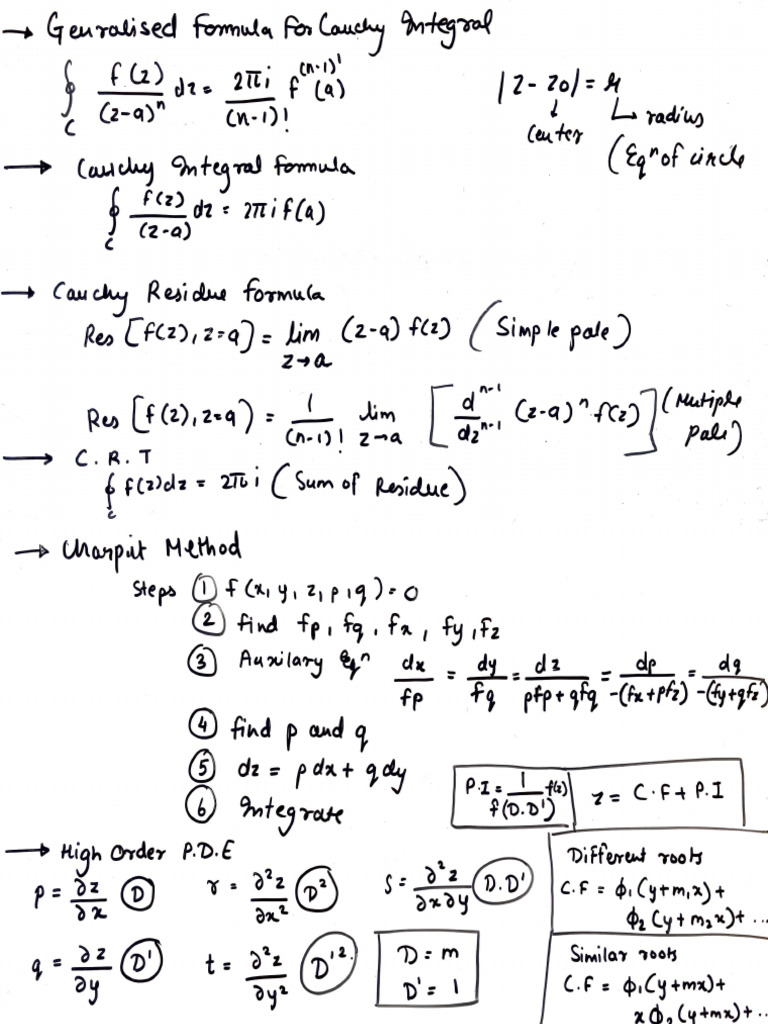 → Genralised Formula For Cauchy Integral
∮_C f(z)/(z-a)^n dz = 2πi/(n-1)! f^(n-1)'(a)
|z - z0| = r
↓ center
↳ radius
(Eqn of circle
→ Cauchy Integral formula
∮_C f(z)/(z-a) dz = 2πi f(a)
→ Cauchy Residue formula
Res [f(z), z=a] = lim z→a (z-a) f(z) (Simple pole)
Res [f(z), z=a) = 1/(n-1)! lim z→a [d^n-1/dz^n-1 (z-a)^n f(z)] (Mutiple Pole)
→ C.R.T
∮_c f(z)dz = 2πi (Sum of Residue)
→ Charpit Method
Steps ① f(x, y, z, p, q) = 0
② find fp, fq, fx, fy, fz
③ Auxilary Eqn dx/fp = dy/fq = dz/pfp + qfq = dp/-(fx+pfz) = dq/-(fy+qfz)
④ find p and q
⑤ dz = p dx + q dy
⑥ Integrate
P.I = 1/f(D.D') f(z)
z = C.F + P.I
→ High Order P.D.E
p = ∂z/∂x (D) r = ∂²z/∂x² (D²) S = ∂²z/∂x∂y (D.D')
q = ∂z/∂y (D') t = ∂²z/∂y² (D'²)
D = m
D' = 1
Different roots
C.F = ϕ₁(y+m₁x) +
ϕ₂(y+m₂x) + ...
Similar roots
C.F = ϕ₁(y+mx) +
xϕ₂(y+mx) + ...